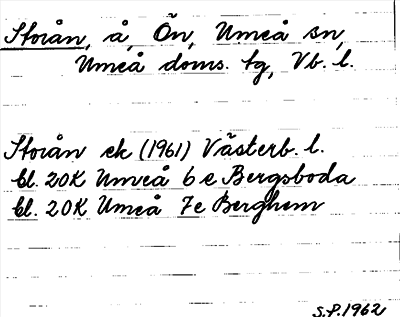 Storån, å, Ön, Umeå sn,
Umeå doms. tg, Vb. l.
Storån ek (1961) Västerb. l.
bl. 20K Umeå 6e Bergsboda
bl. 20K Umeå 7e Berghem
S.P. 1962